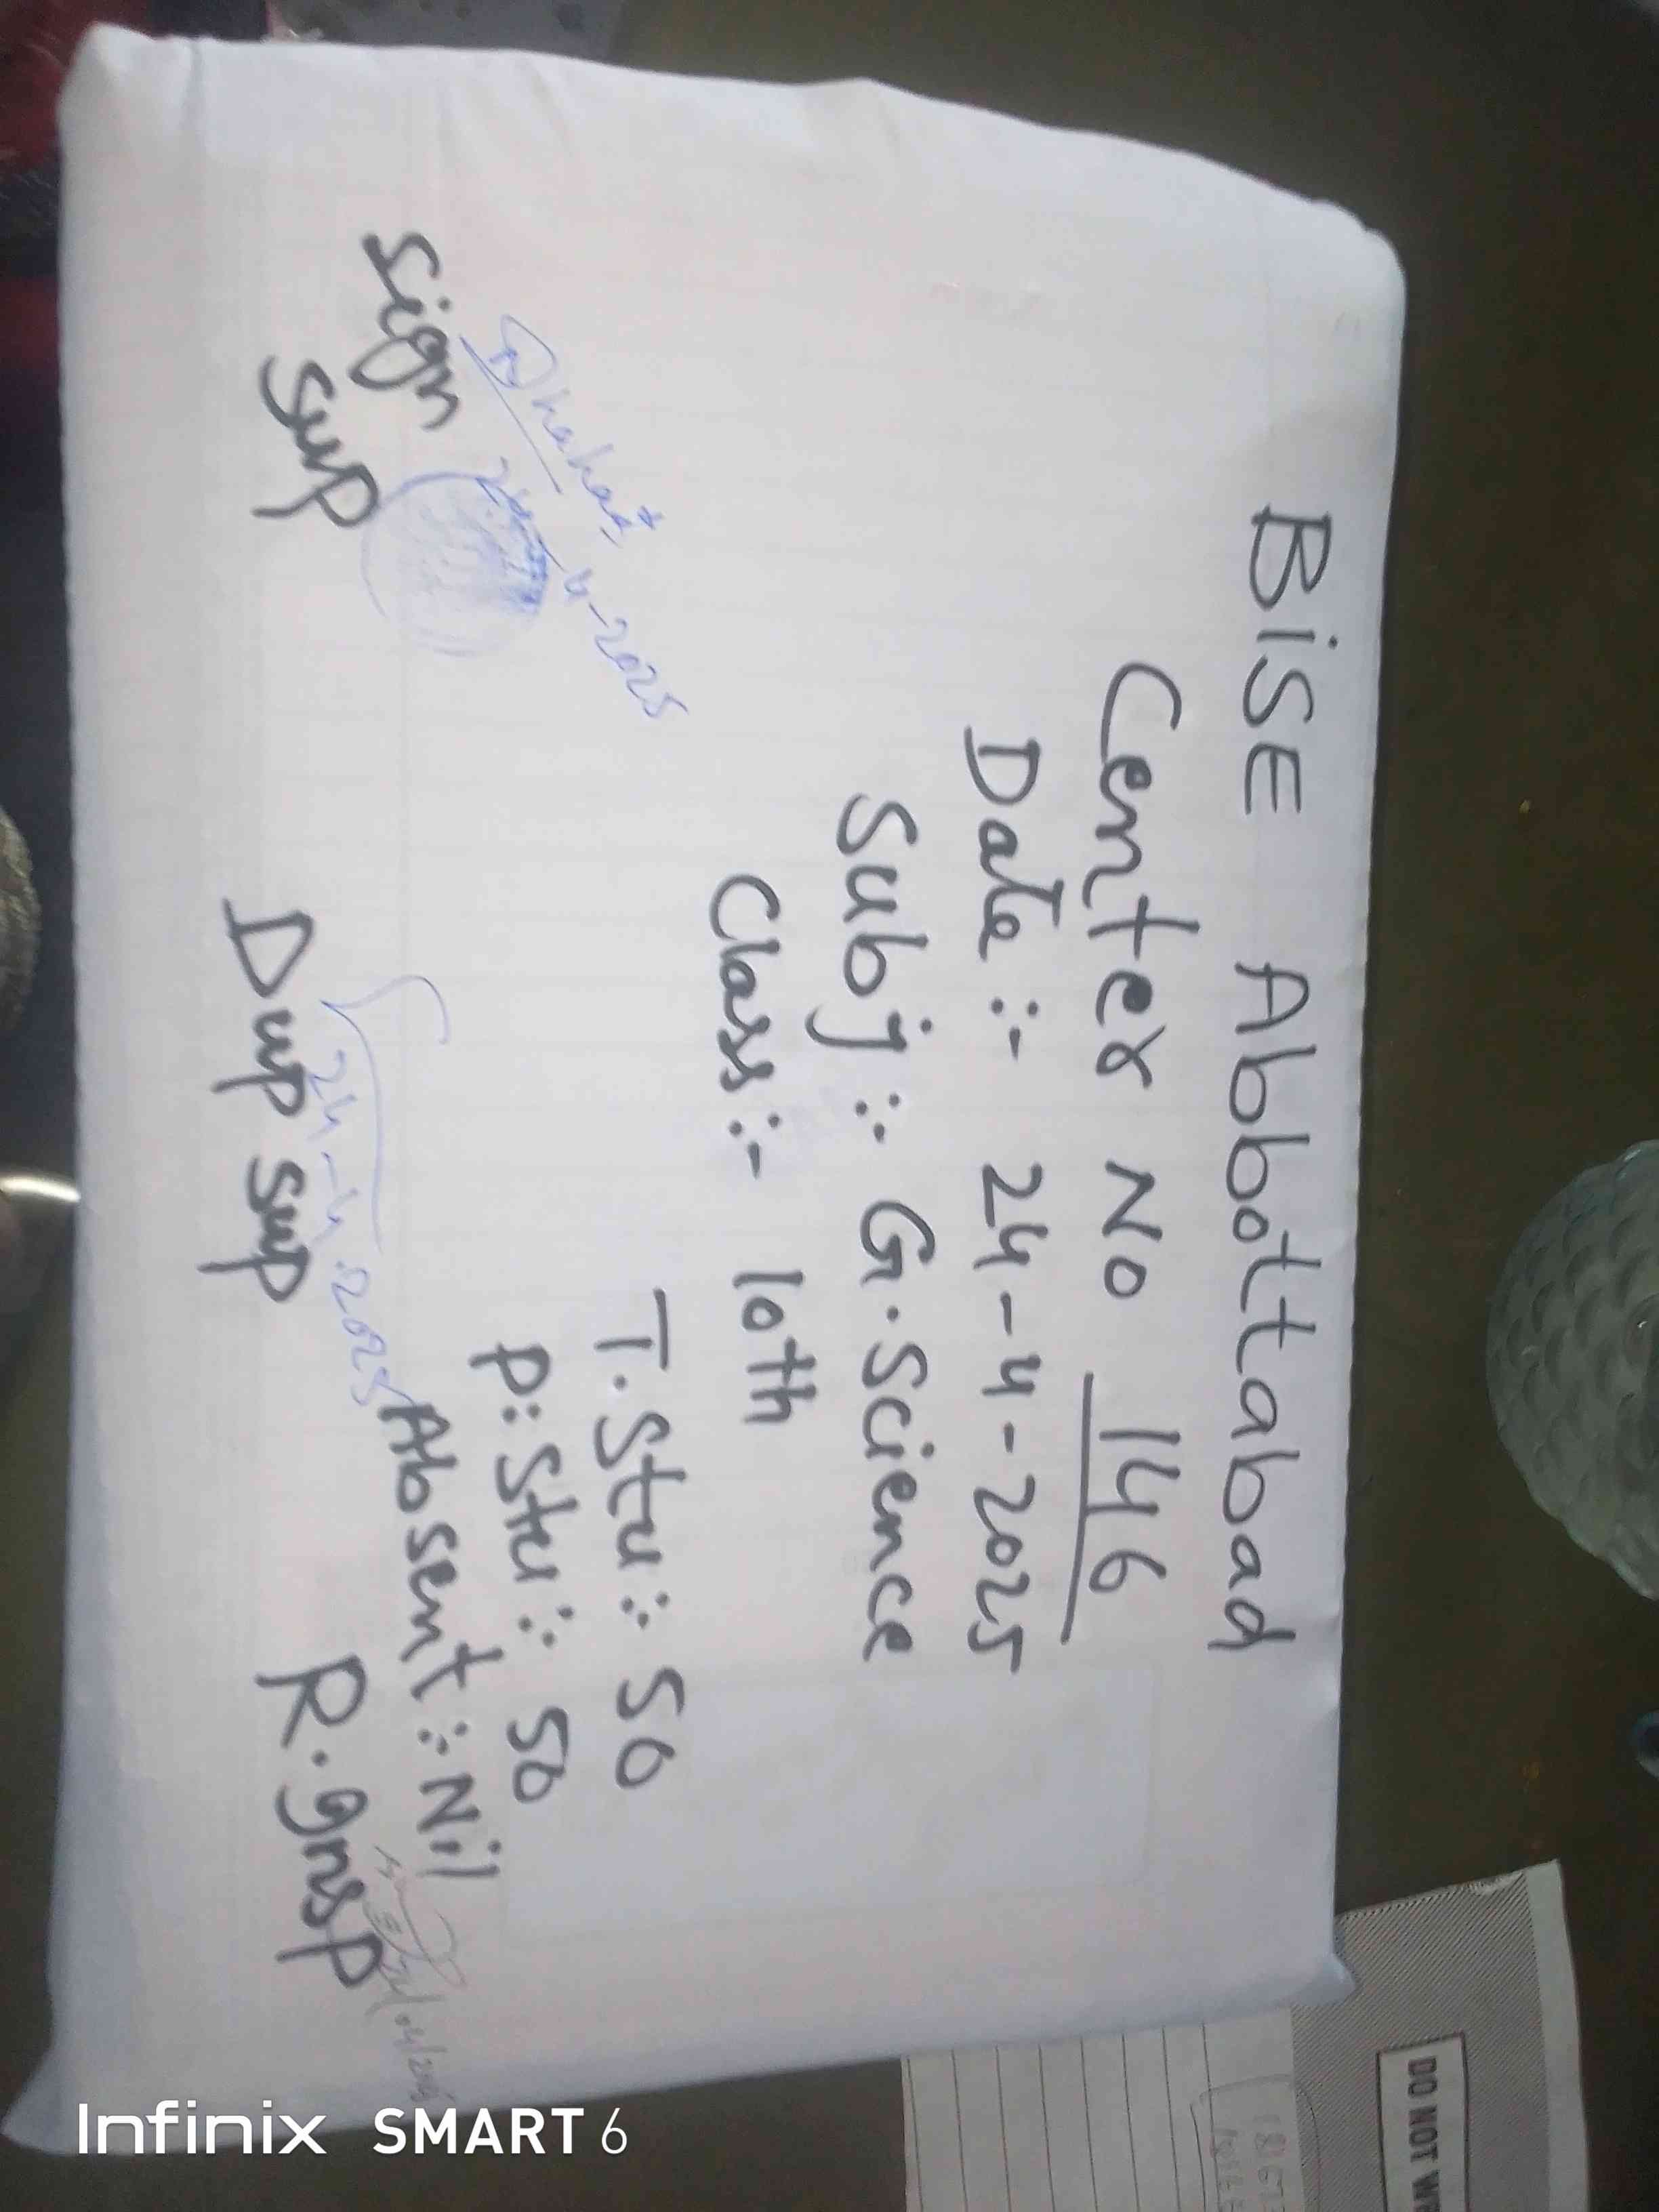 BiSE Abbottabad
Center No 146
Date :- 24-4-2025
Subj :- G.Science
Class :- 10th
T.Stu :- 50
P:Stu :- 50
Absent :- Nil
24-4-2025
24-4-2025
Sign
Sup
Dup sup
R.Insp
DO NOT W
Infinix SMART 6